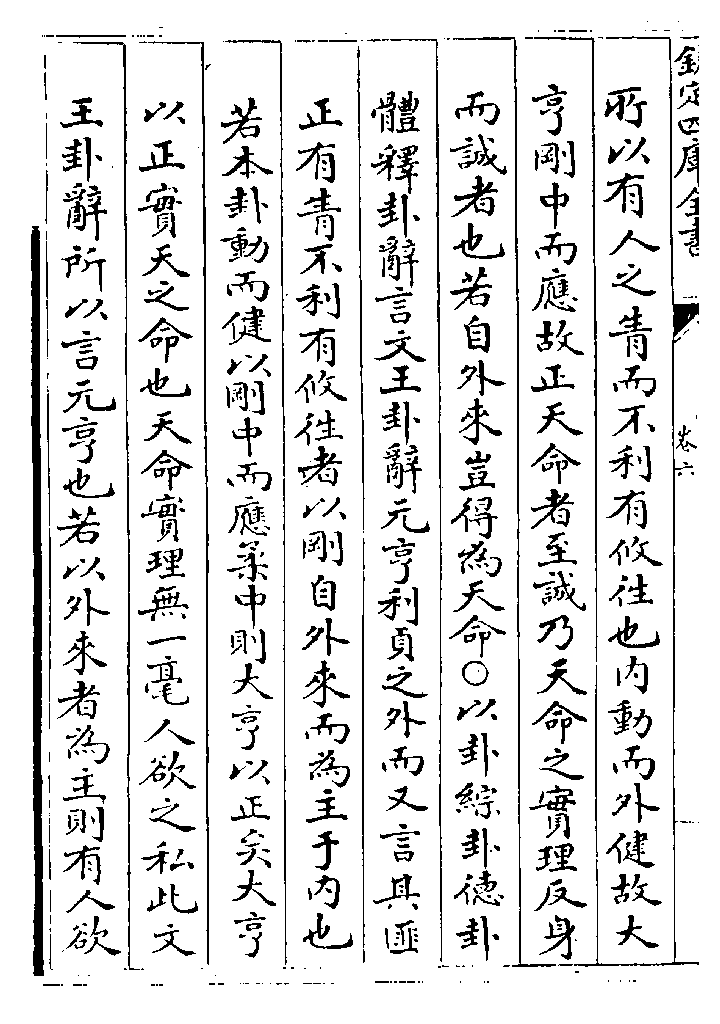 欽定四庫全書
卷六
所以有人之眚而不利有攸往也内動而外健故大
亨剛中而應故正天命者至誠乃天命之實理反身
而誠者也若自外來豈得為天命○以卦綜卦徳卦
體釋卦辭言文王卦辭元亨利貞之外而又言其匪
正有眚不利有攸徃者以剛自外來而為主于内也
若本卦動而健以剛中而應柔中則大亨以正矣大亨
以正實天之命也天命實理無一毫人欲之私此文
王卦辭所以言元亨也若以外來者為主則有人欲